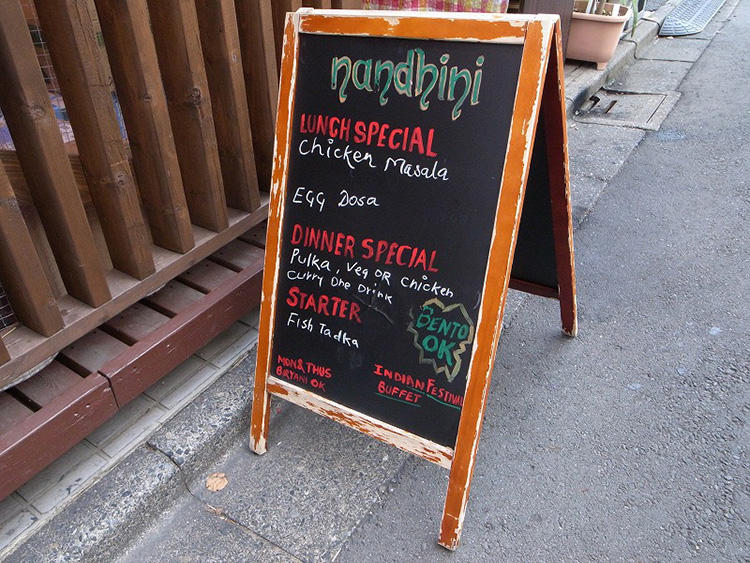 nandhini
LUNCH SPECIAL
Chicken Masala
EGG Dosa
DINNER SPECIAL
Pulka, Veg OR chicken
Curry One Drink
STARTER
Fish Tadka
BENTO
OK
MON & THUS
BIRYANI OK
INDIAN FESTIVAL
BUFFET